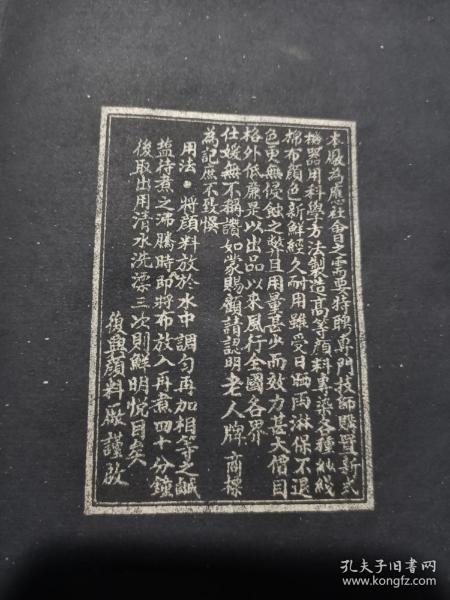 本廠為應社會之需要特聘專門技師購置新式
機器用科學方法製造高等顏料專染各種紗綫
棉布顏色新鮮經久耐用雖受日晒雨淋保不退
色更無侵蝕之弊且用量甚少而效力甚大價目
格外低廉是以出品以來風行全國各界
仕媛無不稱讚如蒙賜顧請認明老人牌商標
為記庶不致悞
用法·將顏料放於水中調勻再加相等之鹹
盐待煮之沸騰時即將布放入再煮四十分鐘
後取出用清水洗漂三次則鮮明悅目矣
復興顏料廠謹啟
孔夫子旧书网
www.kongfz.com